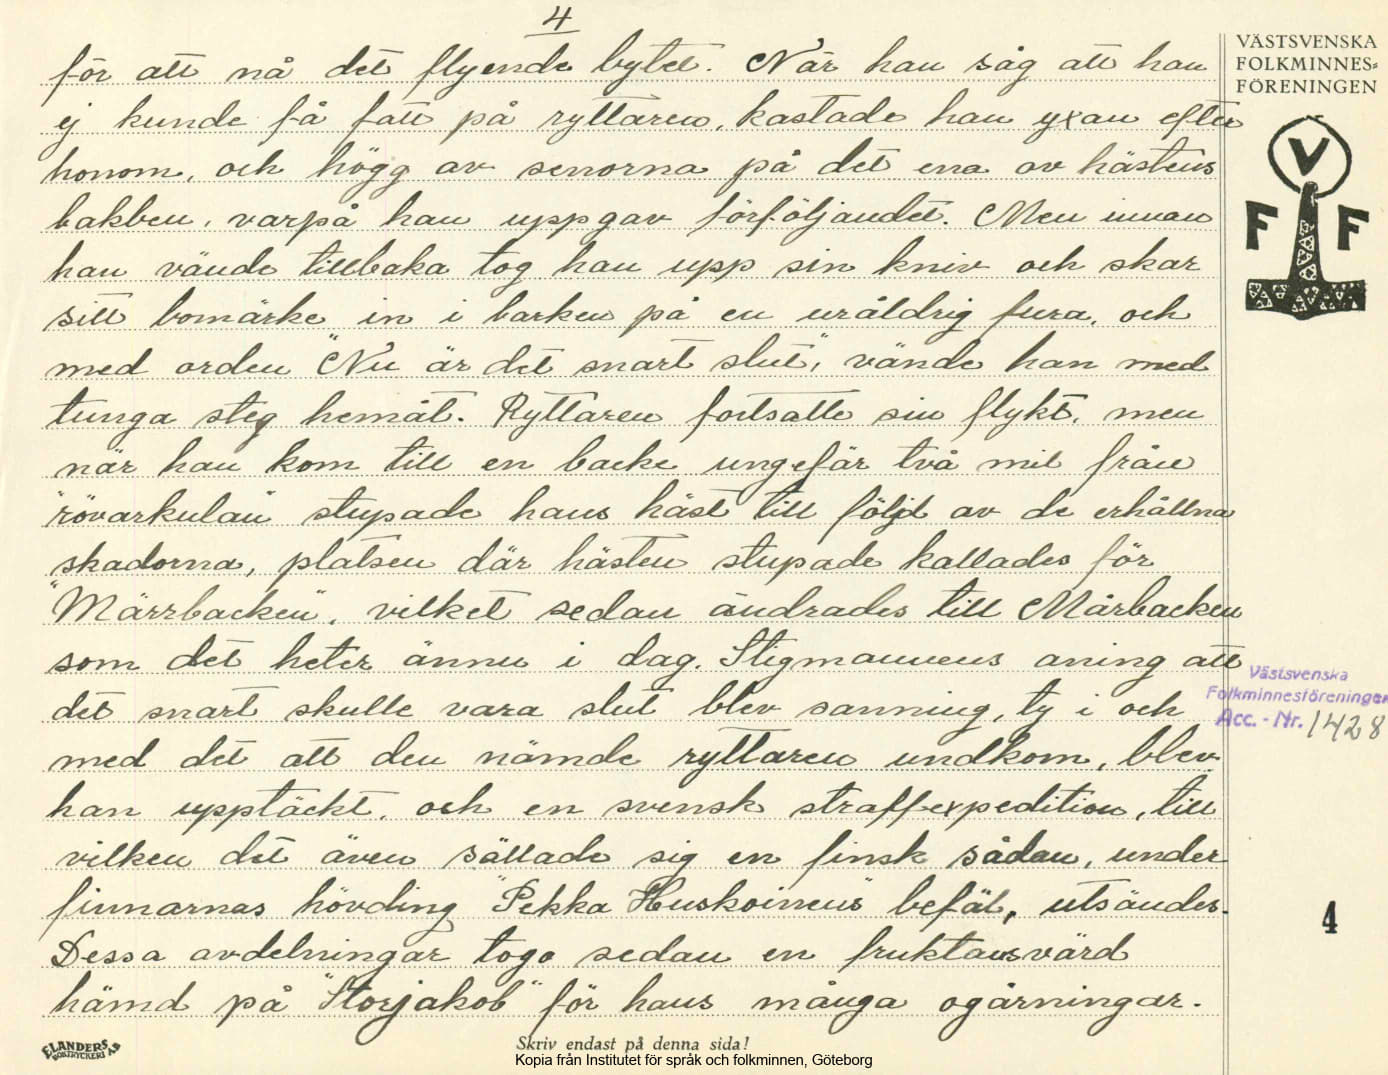 4
för att nå det flyende bytet. När han såg att han
ej kunde få fatt på ryttaren, kastade han yxan efter
honom, och högg av senorna på det ena av hästens
bakben, varpå han uppgav förföljandet. Men innan
han vände tillbaka tog han upp sin kniv och skar
sitt bomärke in i barken på en uråldrig fura, och
med orden "Nu är det snart slut", vände han med
tunga steg hemåt. Ryttaren fortsatte sin flykt, men
när han kom till en backe ungefär två mil från
"rövarkulan" stupade hans häst till följd av de erhållna
skadorna, platsen där hästen stupade kallades för
"Märrbacken", vilket sedan ändrades till Mårbacken
som det heter ännu i dag. Stigmannens aning att
det snart skulle vara slut blev sanning, ty i och
med det att den nämde ryttaren undkom, blev
han upptäckt, och en svensk straffexpedition, till
vilken det även sällade sig en finsk sådan, under
finnarnas hövding "Pekka Huskoinens" befäl, utsändes.
Dessa avdelningar togo sedan en fruktansvärd
hämd på "Storjakob" för hans många ogärningar.
VÄSTSVENSKA
FOLKMINNES-
FÖRENINGEN
V
F F
Västsvenska
Folkminnesföreningen
Acc. - Nr. 1428
4
ELANDERS
BOKTRYCKERI AB
Skriv endast på denna sida!
Kopia från Institutet för språk och folkminnen, Göteborg